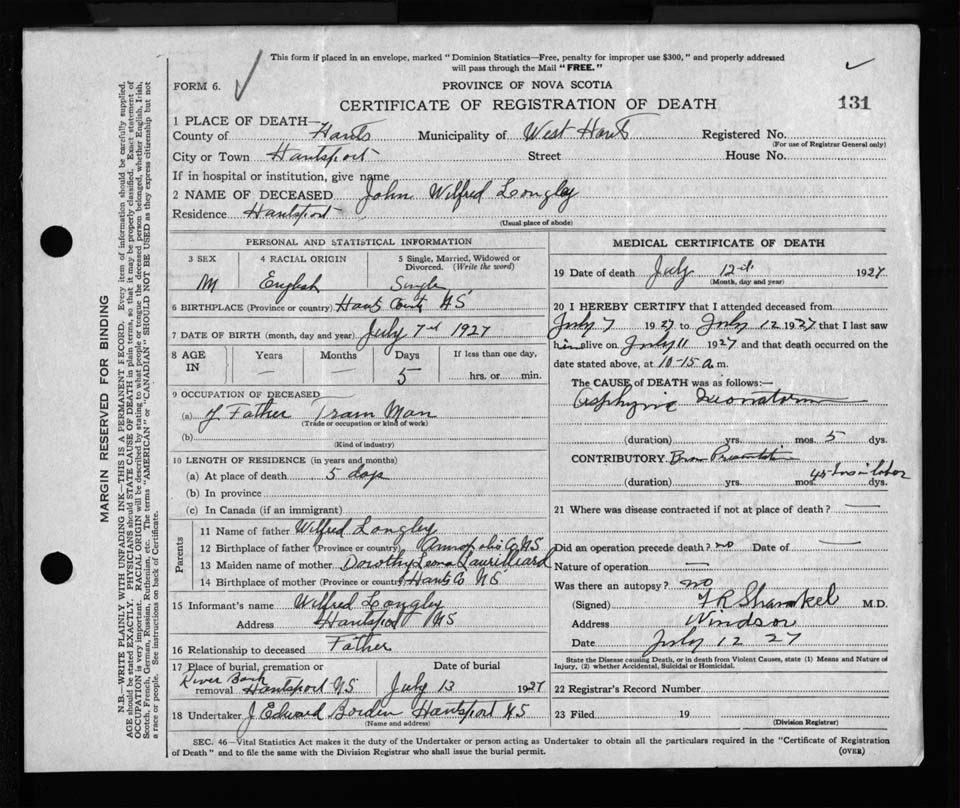 This form if placed in an envelope, marked "Dominion Statistics—Free, penalty for improper use $300," and properly addressed
will pass through the Mail "FREE."
FORM 6.
PROVINCE OF NOVA SCOTIA
CERTIFICATE OF REGISTRATION OF DEATH
131
1 PLACE OF DEATH—
County of Hants Municipality of West Hants Registered No.
(For use of Registrar General only)
City or Town Hantsport Street House No.
If in hospital or institution, give name
2 NAME OF DECEASED John Wilfred Longley
Residence Hantsport
(Usual place of abode)
PERSONAL AND STATISTICAL INFORMATION
3 SEX 4 RACIAL ORIGIN 5 Single, Married, Widowed or
Divorced. (Write the word)
M English Single
6 BIRTHPLACE (Province or country) Hants County NS
7 DATE OF BIRTH (month, day and year) July 7th 1927
8 AGE IN Years Months Days If less than one day,
— — 5 hrs. or min.
9 OCCUPATION OF DECEASED
(a) of Father Tram Man
(Trade or occupation or kind of work)
(b)
(Kind of industry)
10 LENGTH OF RESIDENCE (in years and months)
(a) At place of death 5 days
(b) In province
(c) In Canada (if an immigrant)
Parents
11 Name of father Wilfred Longley
12 Birthplace of father (Province or country) Annapolis Co NS
13 Maiden name of mother Dorothy Leona Laurilliard
14 Birthplace of mother (Province or country) Hants Co NS
15 Informant's name Wilfred Longley
Address Hantsport NS
16 Relationship to deceased Father
17 Place of burial, cremation or Date of burial
River Bank
removal Hantsport NS July 13 1927
18 Undertaker J Edward Borden Hantsport NS
(Name and address)
MEDICAL CERTIFICATE OF DEATH
19 Date of death July 12th 1927
(Month, day and year)
20 I HEREBY CERTIFY that I attended deceased from
July 7 1927 to July 12 1927 that I last saw
him alive on July 11 1927 and that death occurred on the
date stated above, at 10-15 a.m.
The CAUSE OF DEATH was as follows:—
Asphyxia Neonatorum
(duration) yrs. mos. 5 dys.
CONTRIBUTORY Brow Presentation
45 hrs in labor
(duration) yrs. mos. dys.
21 Where was disease contracted if not at place of death? —
Did an operation precede death? no Date of —
Nature of operation —
Was there an autopsy? no
(Signed) F R Shankel M.D.
Address Windsor
Date July 12 27
State the Disease causing Death, or in death from Violent Causes, state (1) Means and Nature of
Injury, (2) whether Accidental, Suicidal or Homicidal.
22 Registrar's Record Number
23 Filed 19
(Division Registrar)
SEC. 46—Vital Statistics Act makes it the duty of the Undertaker or person acting as Undertaker to obtain all the particulars required in the "Certificate of Registration
of Death" and to file the same with the Division Registrar who shall issue the burial permit.
(OVER)
MARGIN RESERVED FOR BINDING
N.B.—WRITE PLAINLY WITH UNFADING INK—THIS IS A PERMANENT RECORD. Every item of information should be carefully supplied.
AGE should be stated EXACTLY. PHYSICIANS should STATE CAUSE OF DEATH in plain terms, so that it may be properly classified. Exact statement of
OCCUPATION is very important. RACIAL ORIGIN will be described by stating to what people or tongue the deceased person belonged, whether English, Irish,
Scotch, French, German, Russian, Ruthenian, etc. The terms "AMERICAN" or "CANADIAN" SHOULD NOT BE USED as they express citizenship but not
a race or people. See instructions on back of Certificate.